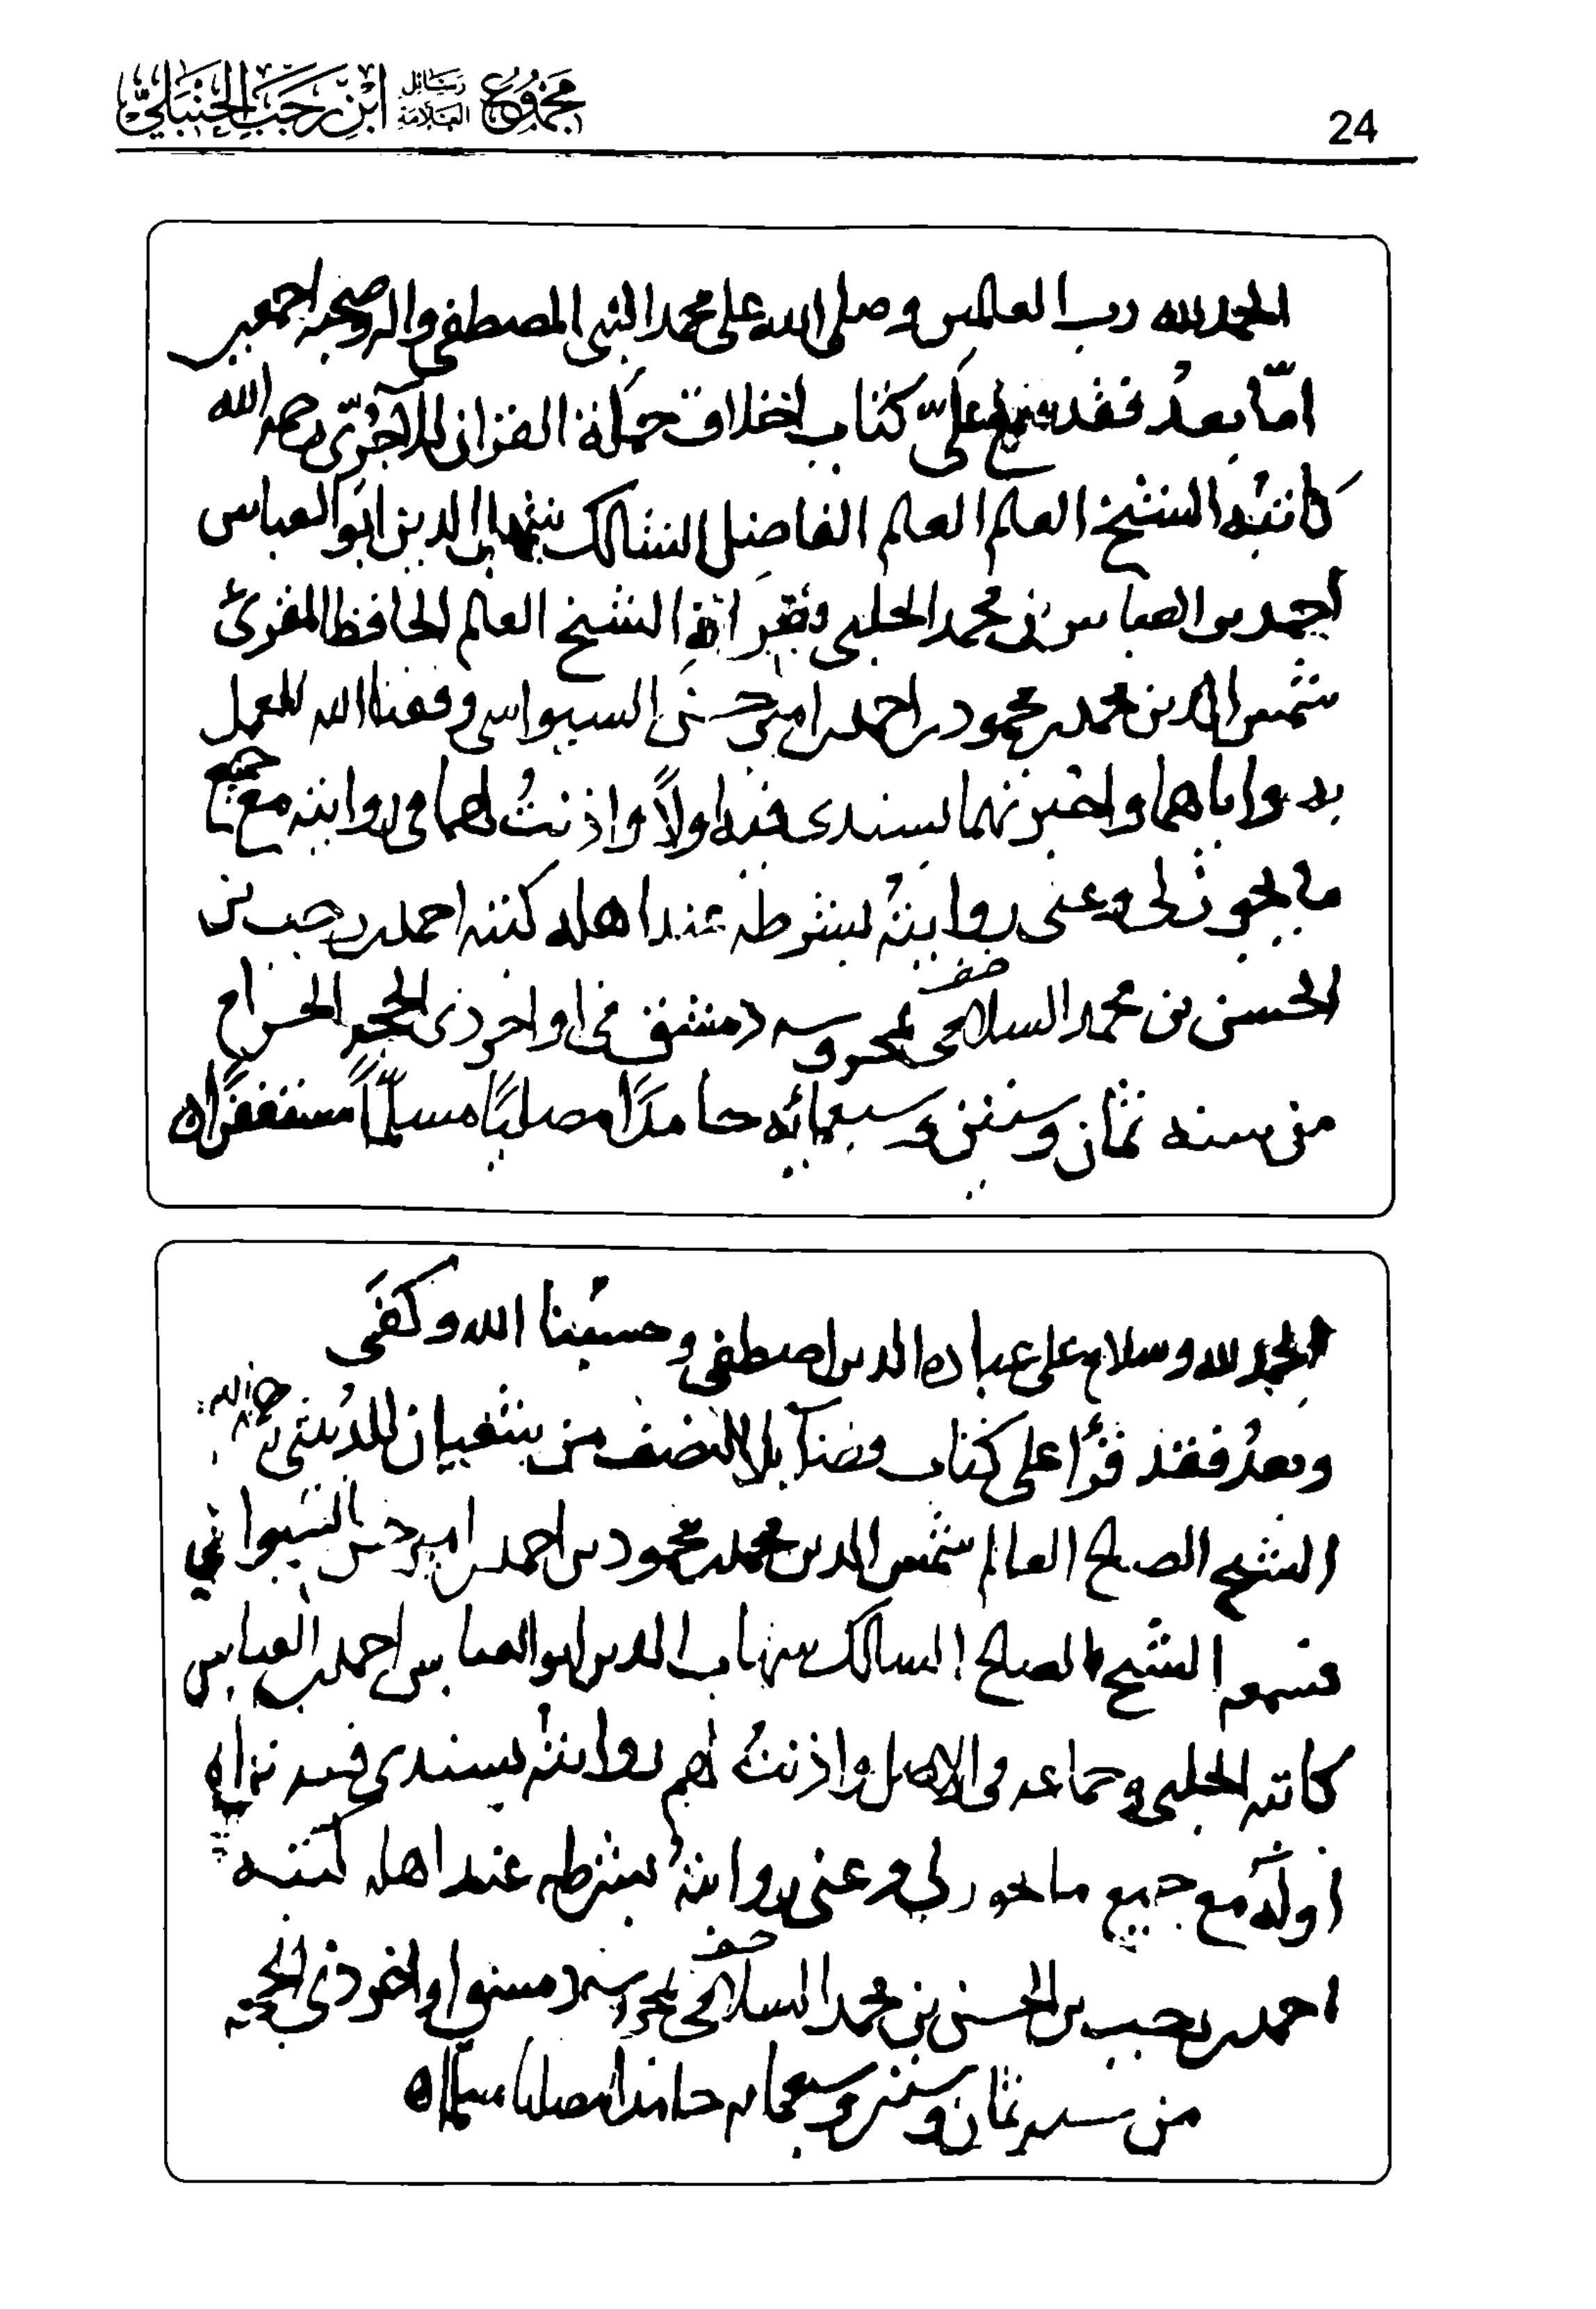 مجموع رسائل العلامة ابن رجب الحنبلي
24
الحمد لله رب العالمين وصلى الله على محمد النبي المصطفى واله وصحبه اجمعين
امّا بعدُ فقد سمع عليّ كتاب اخلاق حملة القران للآجرّي رحمه الله
كاتبُه الشيخ العالم العالم الفاضل السالك شهاب الدين ابو العباس
احمد بن العباس بن محمد الحلبي وبقراة الشيخ العالم الحافظ المقرئ
شمس الدين محمد بن محمود بن احمد بن امير حسن السيواسي وفقنا الله للعمل
به واياهما واخبرتهما بسندي فيه اولاً واذنتُ لهما في روايته مع جميع
ما يجوز لي وعني روايتهُ بشرطه عند اهله كتبه احمد بن رجب بن
الحسن بن محمد السلامي بمحروسه دمشق في اواخر ذي الحجه الحرام
من سنه ثمان وستين وسبعمائه حامدًا مصليًا مسلمًا مستغفرًا
الحمد لله وسلام على عباده الدين اصطفى وحسبُنا الله وكفَى
وبعدُ فقد قرأ على كتاب فضآيل النصف من شعبان للدُبيثي رحمه الله
الشيخ الصالح العالم شمس الدين محمد بن محمود بن احمد بن امير حسن السيواسي
فسمعه الشيخ الصالح السالك شهاب الدين ابو العباس احمد بن العباس
كاتبه الحلبي وجماعه في الاصل واذنتُ لهم روايتهُ بسندي فيه
اولَه مع جميع ما يجوز لي وعني روايتهُ بشرطه عند اهله كتبه
احمد بن رجب بن الحسن بن محمد السلامي بمحروسه دمشق اواخر ذي الحجه
من سنه ثمان وستين وسبعمايه حامدا مصليا مسلما